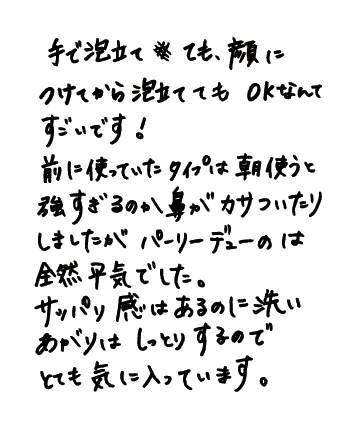 手で泡立てても、顔に
つけてから泡立てても OKなんて
すごいです!
前に使っていたタイプは朝使うと
強すぎるのか鼻がカサついたり
しましたがパーリーデューのは
全然平気でした。
サッパリ感はあるのに洗い
あがりはしっとりするので
とても気に入っています。